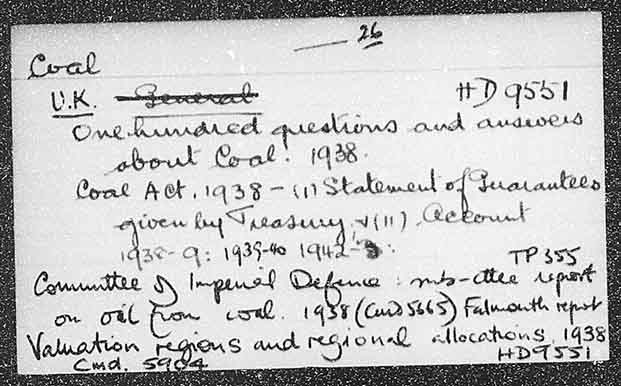 — 26
Coal
U.K. General HD9551
One hundred questions and answers
about Coal. 1938.
Coal Act, 1938 – (i) Statement of Guarantees
given by Treasury & (ii) Account
1938-9: 1939-40 1942-3:
TP355
Committee of Imperial Defence: sub-cttee report
on oil from coal. 1938 (Cmd 5665) Falmouth report
Valuation regions and regional allocations. 1938
Cmd. 5904 HD9551